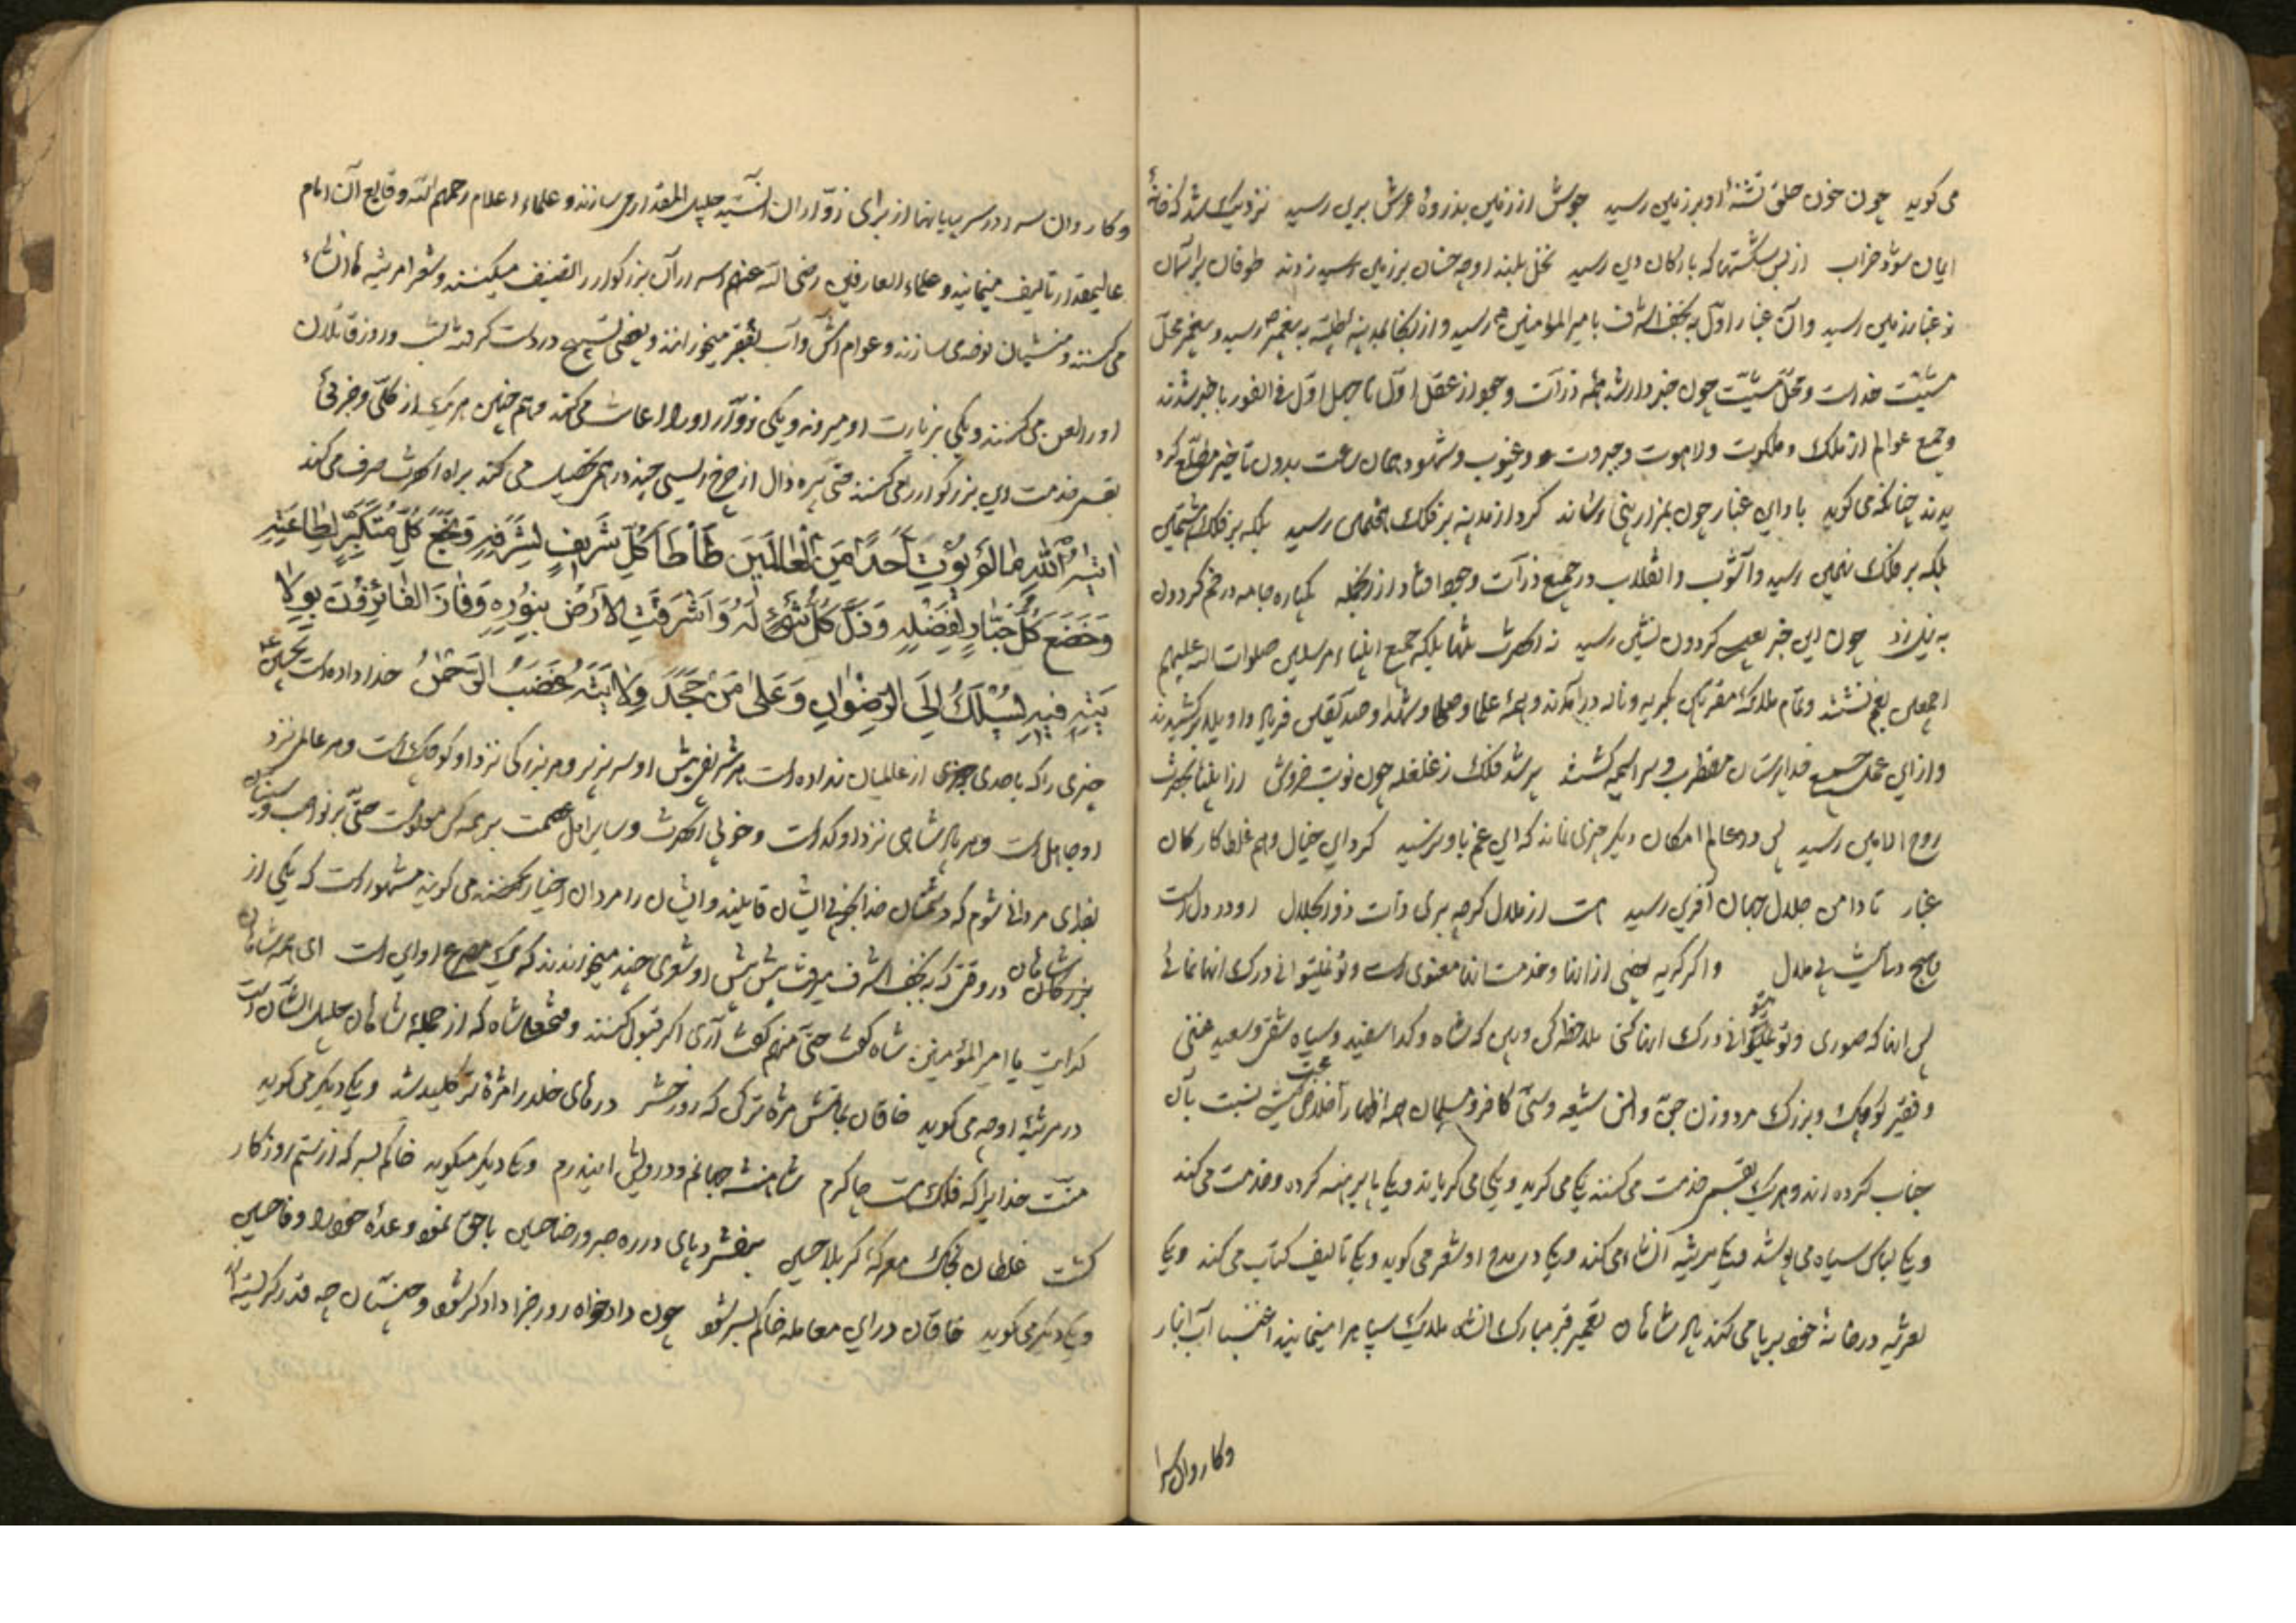 می کوید چون خون حلق تشنهٔ او بر زمین رسید جوش از زمین بذروهٔ عرش برین رسید نزدیک شد که خانهٔ
ایمان شود خراب از بس شکستها که بارکان دین رسید نخل بلند او چه خسان بر زمین زدند طوفان بر آسمان
ز غبار زمین رسید وان غبار اول به نجف اشرف بامیر المؤمنین رسید و از آنجا بمدینه طیبه به پیغمبر رسید و پیغمبر محل
مشیّت خداست و محلّ مشیّت چون خبردار شد همه ذرّات وجود از عقل اوّل تا جهل اوّل فی الفور باخبر شدند
وجمع عوالم از ملک و ملکوت و لاهوت و جبروت و غیوب و شهود همان ساعت بدون تأخیر مطّلع کرد
یدند چنانکه می کوید باد این غبار چون بمزار نبی رساند کرد از مدینه بر فلک هفتمین رسید بلکه بر فلک هشتمین
بلکه بر فلک نهمین رسید و آشوب و انقلاب در جمیع ذرّات وجود افتاد از آنجمله یکباره جامه در خم کردون
به نیل زد چون این خبر بعیسی کردون نشین رسید نه انحضرت تنها بلکه جمیع انبیاء مرسلین صلوات الله علیهم
اجمعین بغم نشستند و تمام ملائکه مقرّبین بکریه و ناله درآمدند و همه علما و صلحا و شهدا و صدّیقین فریاد واویلا برکشیدند
و از این عمل خدا پرستان مضطرب و سراسیمه کشتند پر شد فلک ز غلغله چون نوبت خروش از انبیا بحضرت
روح الامین رسید پس در عالم امکان دیکر چیزی نماند که این غم باو نرسید کرد این خیال وهم غلط کار کان
غبار تا دامن جلال جهان آفرین رسید هست از ملال کرچه بری ذات ذوالجلال او در دل است
و هیچ دلی نیست بی ملال و اکر کریه بعضی از اینها و خدمت اینها معنوی است و تو نمیتوانی درک انها نمائی
پس اینها که صوری و تو میتوانی درک اینها کنی ملاحظه کن و ببین که شاه و کدا سفید و سیاه شقی و سعید غنی
و فقیر کوچک و بزرک مرد و زن جنّ و انس شیعه و سنّی کافر و مسلمان همه اظهار اخلاص و محبت نسبت بآن
جناب کرده اند و هر یک بقسمی خدمت می کنند یکی می کرید و یکی می کریاند و یکی پا برهنه کرده و خدمت می کند
و یکی لباس سیاه می پوشد و یکی مرثیه انشاء می کند و یکی در مدح او شعر می کوید و یکی تألیف کتاب می کند و یکی
تعزیه در خانهٔ خود برپا می کند پادشاهان تعمیر قبر مبارک انشاه ملایک سپاه را مینمایند اغنیا آب انبار
وکاروان سرا
وکاروان سرا در سر بیابانها از برای زوّاران آن سیّد جلیل المقدار می سازند و علماء اعلام رحمهم الله وقایع آن امام
عالیمقدار تألیف مینمایند و علماء العارفین رضی الله عنهم اسرار آن بزرکوار را تصنیف میکنند و شعرا مرثیه ها انشاء
می کنند و منشیان نوحه می سازند و عوام اش و آب بفقیر میخورانند و بعضی تسبیح در دست کرفته شب و روز قاتلان
او را لعن می کنند و یکی بزیارت او میرود و یکی زوّار او را اعانت می کند و هم چنین هر یک از کلّی و جزئی
بقسمی خدمت این بزرکوار را می کنند حتی پیره زال از چرخ ریسی چند درهم تحصیل می کند براه انحضرت صرف می کند
اتیه الله ما لم یؤت احداً من العالمین طأطأ کلّ شریف لشرفه و بخع کلّ متکبّر لطاعته
و خضع کلّ جبّار لفضله و ذلّ کلّ شیء له و اشرقت الارض بنوره و فاز الفائزون بولا
یته فیه یسلک الی الرضوان و علی من جحد ولایته غضب الرحمن خدا داده است بحسین
چیزی را که باحدی از عالمیان نداده است هر شریفی پیش او سر بزیر و هر بزرکی نزد او کوچک است و هر عالمی نزد
او جاهل است و هر پادشاهی نزد او کداست و خوبی انحضرت و سایر اهل عصمت بر همه کس معلوم است حتّی بر نواصب و سنیان
بفدای مردانی شوم که دشمنان خدا بخوبی ایشان قایلند و ایشان را مردان اختیار می کویند مشهور است که یکی از
بزرکان شاهان در وقتی که به نجف اشرف میرفت پیش پیش او شعری چند میخواندند که یک مصرع او این است ای همه شاهان
کدایت یا امیر المؤمنین شاه کفت حتّی منهم کفت آری اکر قبول کنند و فتحعلی شاه که از جمله شاهان جلیل الشأن است
در مرثیهٔ او چه می کوید خاقان بماتمش مژه تر کن که روز حشر درهای خلد را مژهٔ تر کلید شد و یکی دیکر می کوید
منّت خدایرا که فلک هست چاکرم شاهنشه جهانم و درویش این درم و یکی دیکر میکوید خاکم بسر که از ستم روزکار
کشت غلطان بخاک معرکهٔ کربلا حسین بفشرد پای در ره صبر و رضا حسین با حق نمود وعدهٔ خود را وفا حسین
و یکی دیکر می کوید خاقان در این معامله خاکم بسر شود چون دادخواه روز جزا دادکر شود و چشمان چه قدر کریسته اند